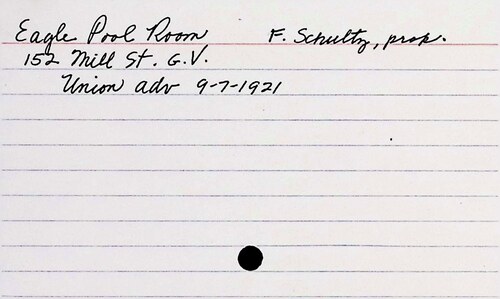 Eagle Pool Room F. Schultz, prop.
152 Mill St. G.V.
Union adv 9-7-1921